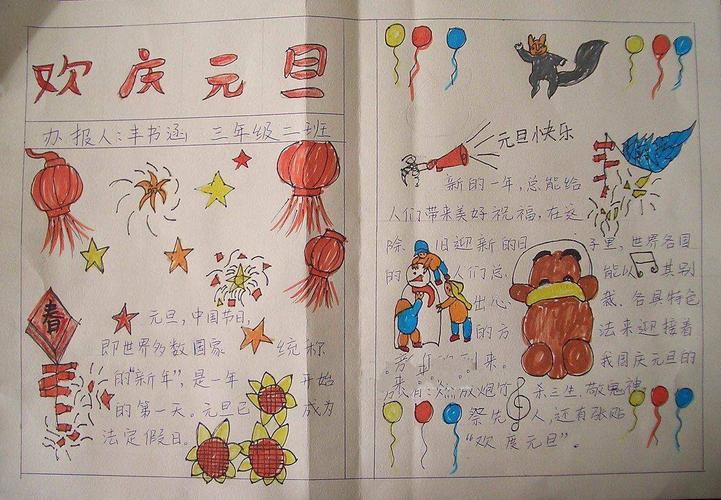 欢庆元旦
办报人:丰书涵 三年级二班
春
元旦,中国节日,
即世界多数国家 统称
的“新年”,是一年 开始
的第一天。元旦已 成为
法定假日。
元旦快乐
新的一年,总能给
人们带来美好祝福,在这
除 旧迎新的日 子里,世界各国
的 人们总 能以 其别
出心 裁、各具特色
的方 法来迎接着
到来。 我国庆元旦的
来有:燃放炮竹 杀三生 敬鬼神
祭先 人,还有张贴
“欢度元旦”。